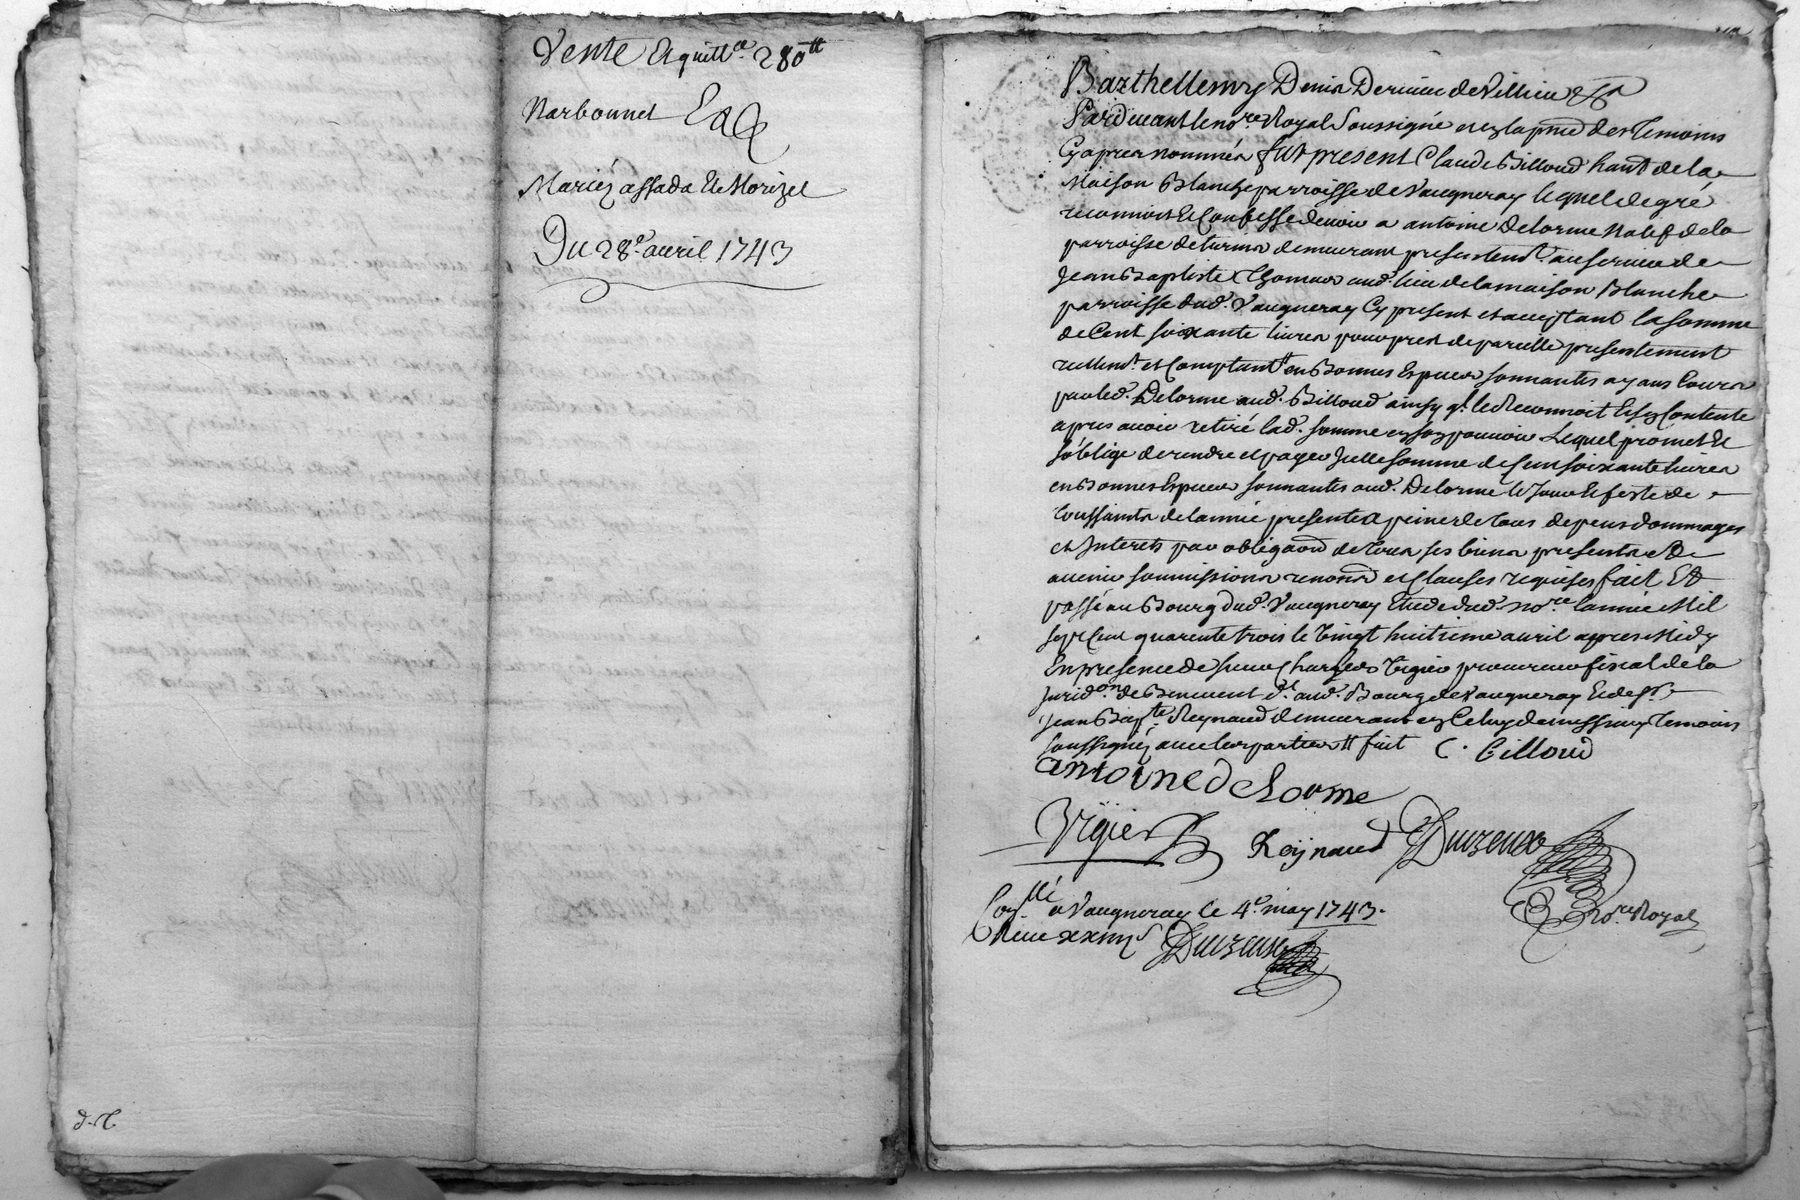 Vente Et quitt.ce 280tt
Narbonnet
Mariez assada Et Morizel
Du 28e. avril 1743
d.T.
Barthellemy Denis Deriuie de Villieu &a
Pardeuant le no.re Royal Soussigné et en la pnce des Temoins
Cy apres nommés fut present Claude Billoud hant de la
Maison Blanche parroisse de Vaugneray lequel de gré
reconnoit Et Confesse deuoir a antoine Delorme Natif de la
parroisse de turins demeurant presentent. au seruice de
Jean Baptiste Thomas aud. lieu de la maison Blanche
parroisse dud. Vaugneray Cy present et acceptant la somme
de Cent soixante liures pour pret de pareille presentement
reellemt. et Comptant en Bonnes Especes sonnantes ayans Cours
par led. Delorme aud. Billoud ainsy ql. le Reconnoit Et sen Contente
apres auoir retiré lad. somme en son pouuoir Lequel promet Et
s'oblige de rendre et payer Jcelle somme de Cent soixante liures
en Bonnes Especes sonnantes aud. Delorme le Jour Et feste de
Toussaints de lannée presente a peine de tous depens dommages
et Interets par obligaon de tous ses biens presents et De
auenir soumissions renons et Clauses requises fait Et
passé au Bourg dud. Vaugneray Etude dud. no.re lannée Mil
sept Cent quarente trois le Vingt huitieme auril apres Midy
En presence de sieur Vigier procureur fiscal de la
Jurid.on de Benevent dt. aud. Bourg de Vaugneray Et de sr.
Jean Bap.te Reynaud demeurant en Celuy de Temoins
soussignéz auec les parties tt fait C. billoud
antoine delorme
Vigier Reynaud Duizeux
no.re Royal
Con.llé a Vaugneray le 4e. may 1743.
Receu Duizeux